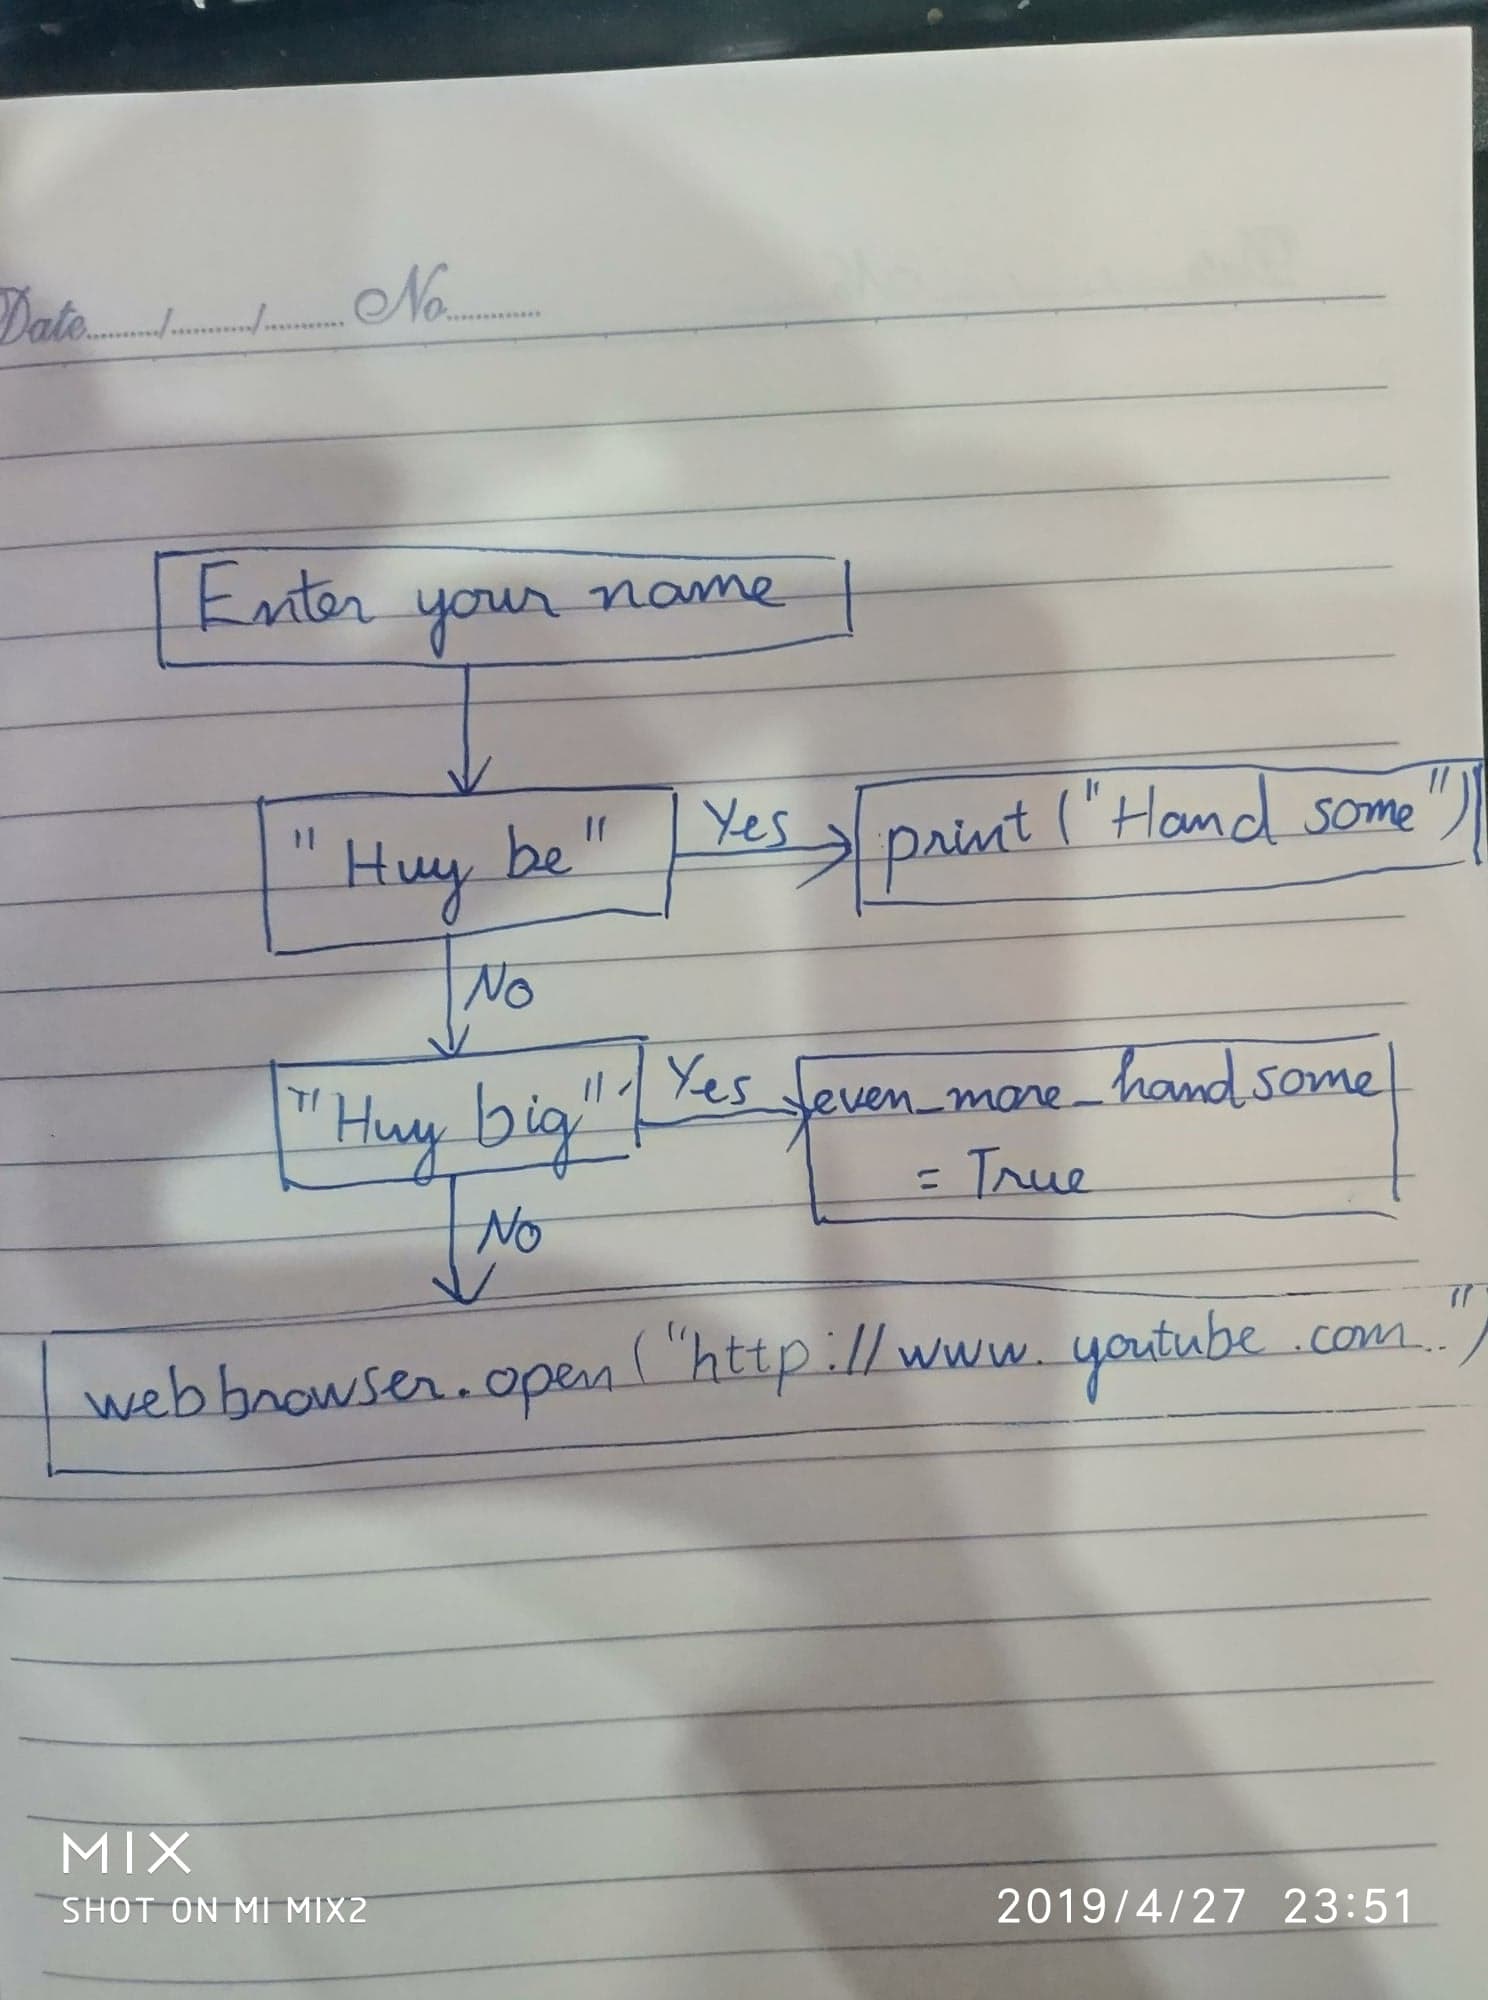 Date........./........./......... No............
Enter your name
"Huy be" Yes print ("Hand some")
No
"Huy big" Yes even_more_handsome
= True
No
webbrowser.open("http://www.youtube.com..")
MIX
SHOT ON MI MIX2
2019/4/27 23:51